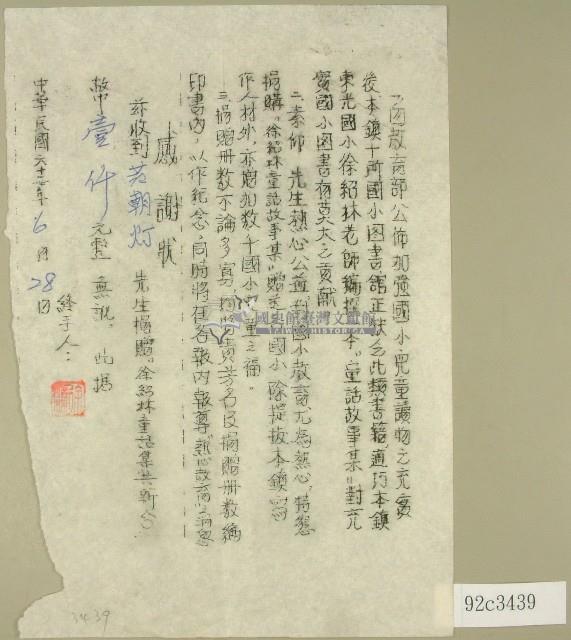 一、因教育部公佈加強國小兒童讀物之充實
後，本鎮十所國小圖書館正缺乏此類書籍，適巧本鎮
東光國小徐紹林老師編撰本「童話故事集」對充
實國小圖書有莫大之貢獻
二、素仰 先生熱心公益對國小教育尤為熱心，特懇
捐購「徐紹林童話故事集」贈 國小除提拔本鎮寫
作人材外，亦嘉加數千國小兒童之福。
三、捐贈册數不論多寡，將貴芳名及捐贈册數編
印書內，以作紀念，同時將在各報內報導「熱心教育」
感謝狀
茲收到 朝灯 先生捐贈「徐紹林童話集共新台
幣 壹仟 元整 無訛。此據
經手人：
中華民國六十 年 6 月 28 日
國史館臺灣文獻館
3439
92c3439